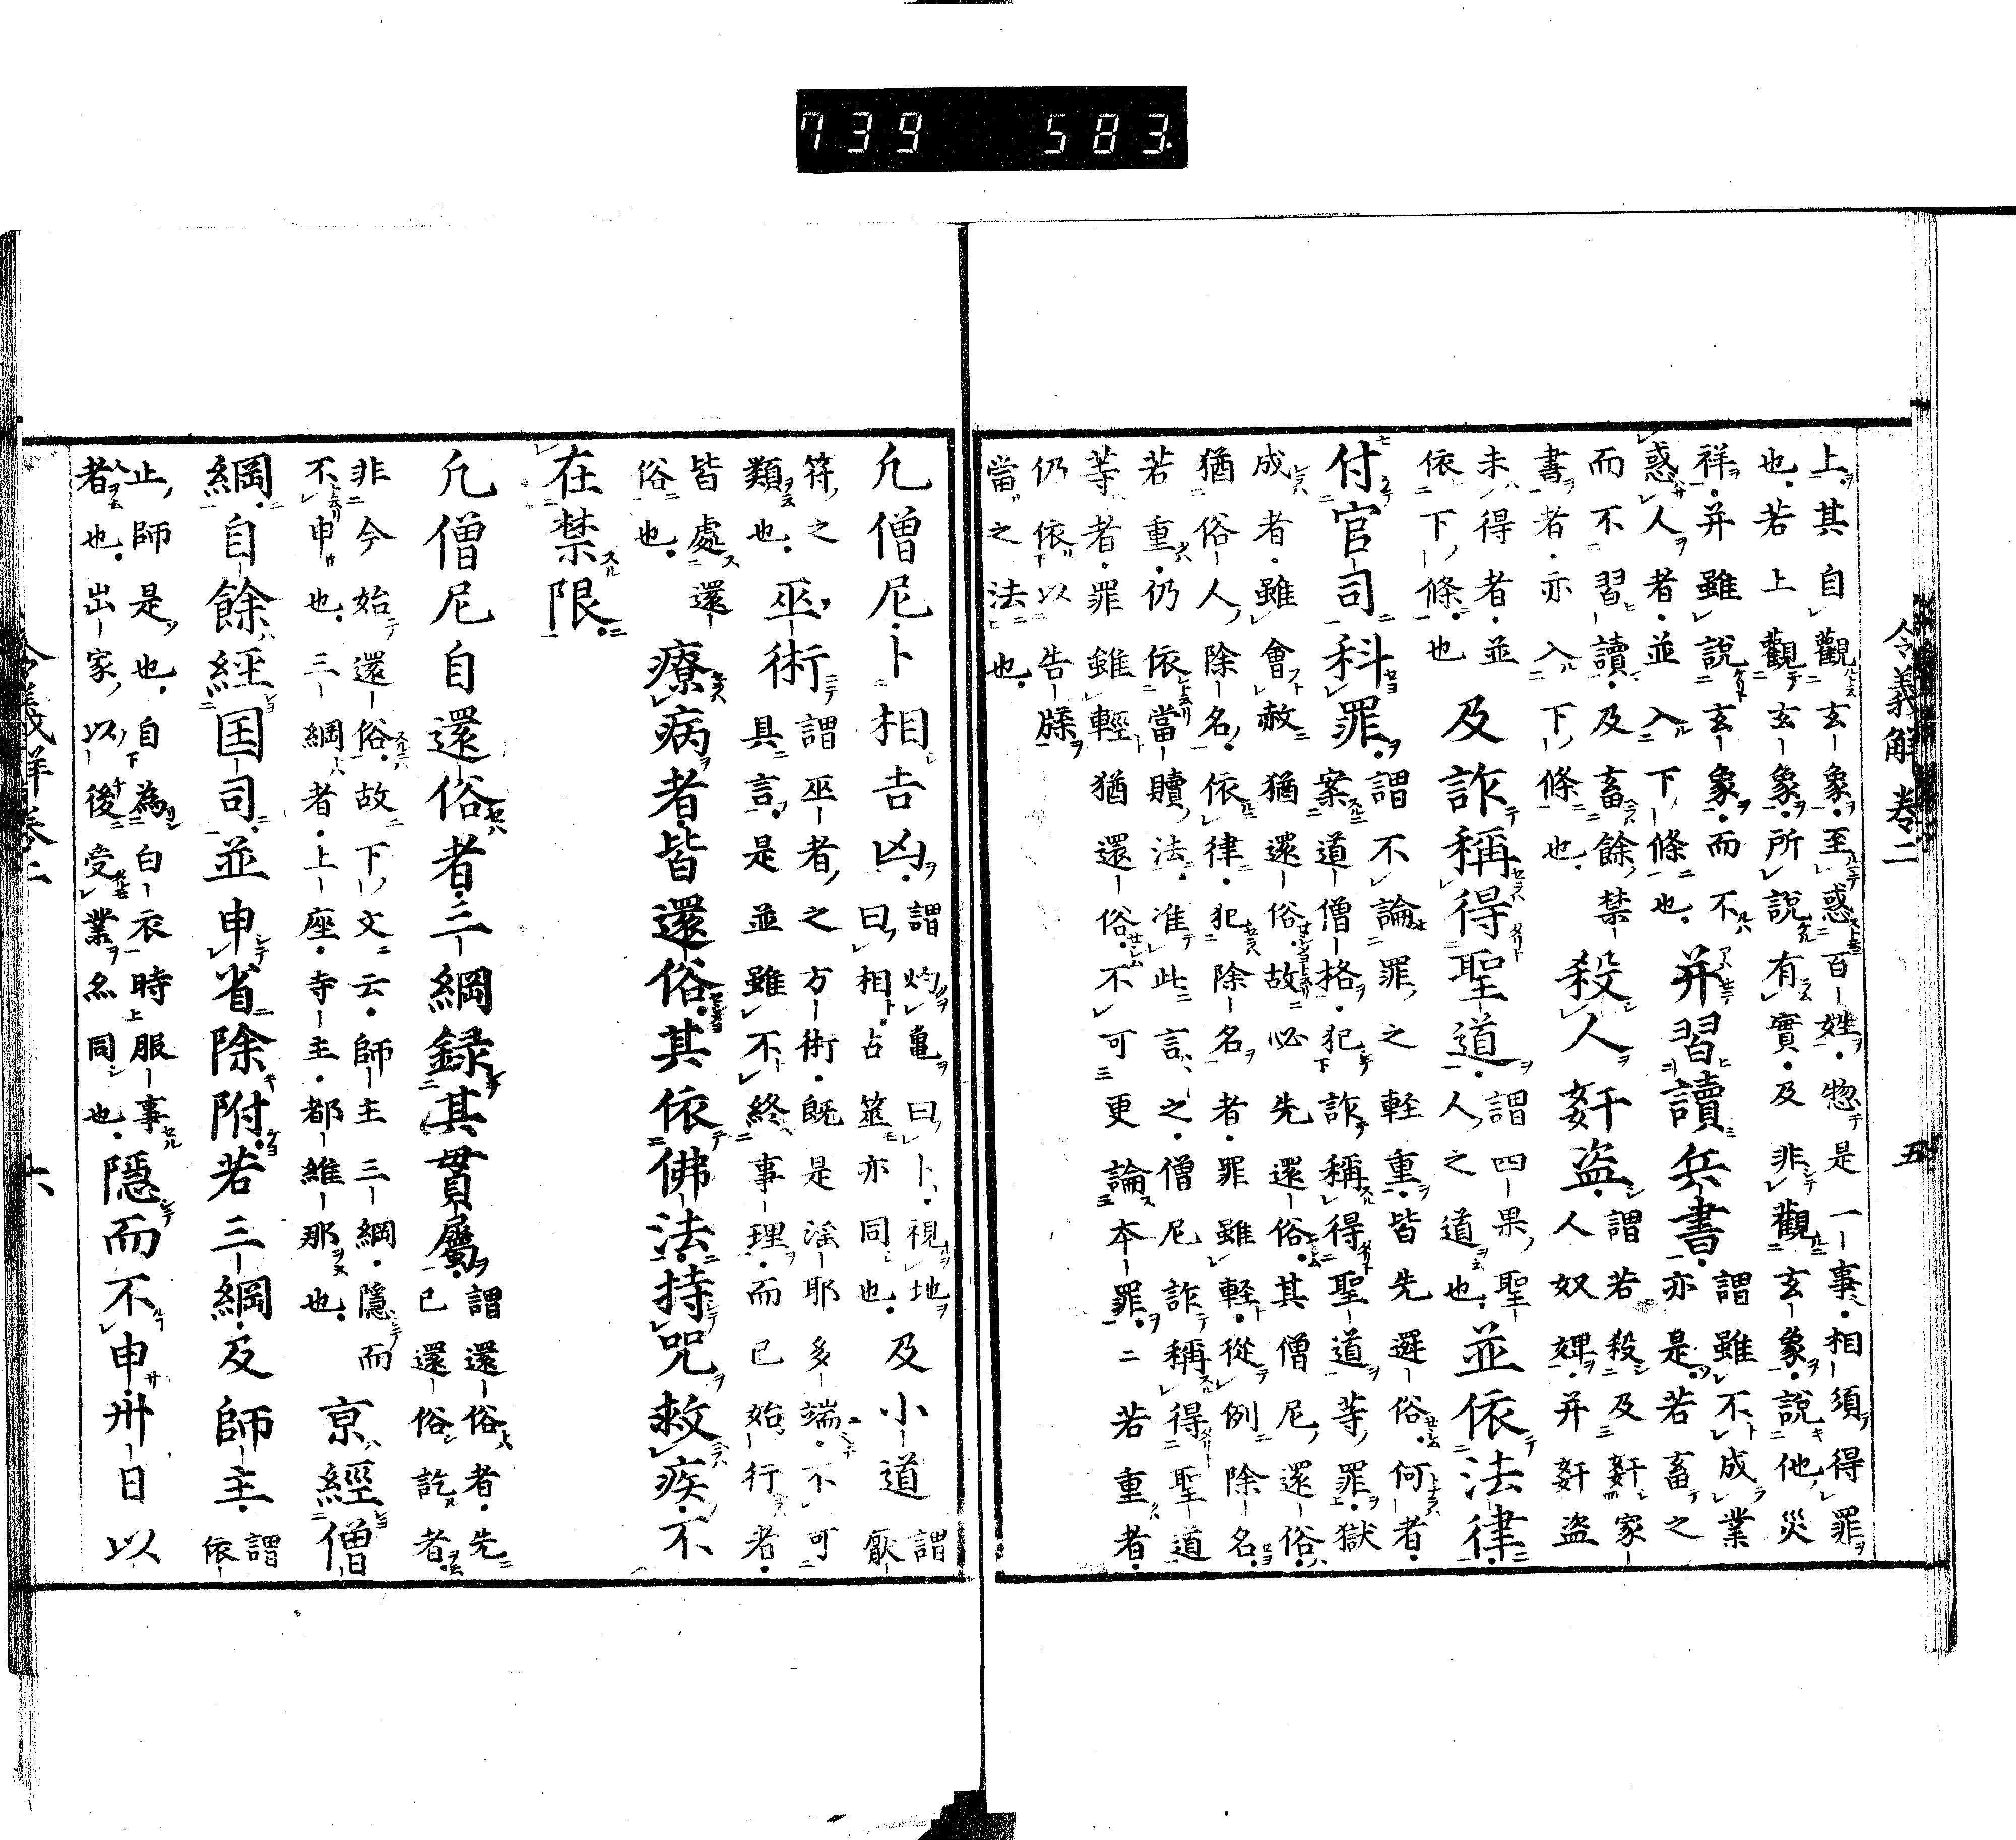 令義解 卷二 五
上其自觀玄象至惑百姓惣是一事相須得罪
也若上觀玄象所說有實及非觀玄象說他災
祥并雖說玄象而不
惑人者並入下條也
并習讀兵書
謂雖不成業
亦是若畜之
而不習讀及畜餘禁
書者亦入下條也
殺人姧盗
謂若殺及姧家
人奴婢并姧盗
未得者並
依下條也
及詐稱得聖道
謂四果聖
人之道也
並依法律
付官司科罪
謂不論罪之軽重皆先還俗何者
案道僧格犯詐稱得聖道等罪獄
成者雖會赦猶還俗故必先還俗其僧尼還俗
猶俗人除名依律犯除名者罪雖軽從例除名
若重仍依當贖法准此言之僧尼詐稱得聖道
等者罪雖輕猶還俗不可更論本罪二若重者
仍依以告牒
當之法也
凢僧尼卜相吉凶
謂灼亀曰卜視地
曰相占筮亦同也
及小道
謂
厭
符之
類也
巫術
謂巫者之方術既是滛耶多端不可
具言是並雖不終事理而已始行者
皆處還
俗也
療病者皆還俗其依佛法持咒救疾不
在禁限
凢僧尼自還俗者三綱録其貫屬
謂還俗者先
已還俗訖者
非今始還俗故下文云師主三綱隱而
不申也三綱者上座寺主都維那也
京經僧
綱自餘経国司並申省除附若三綱及師主
謂
依
止師是也自為白衣時服事
者也出家以後受業亦同也
隱而不申卅日以